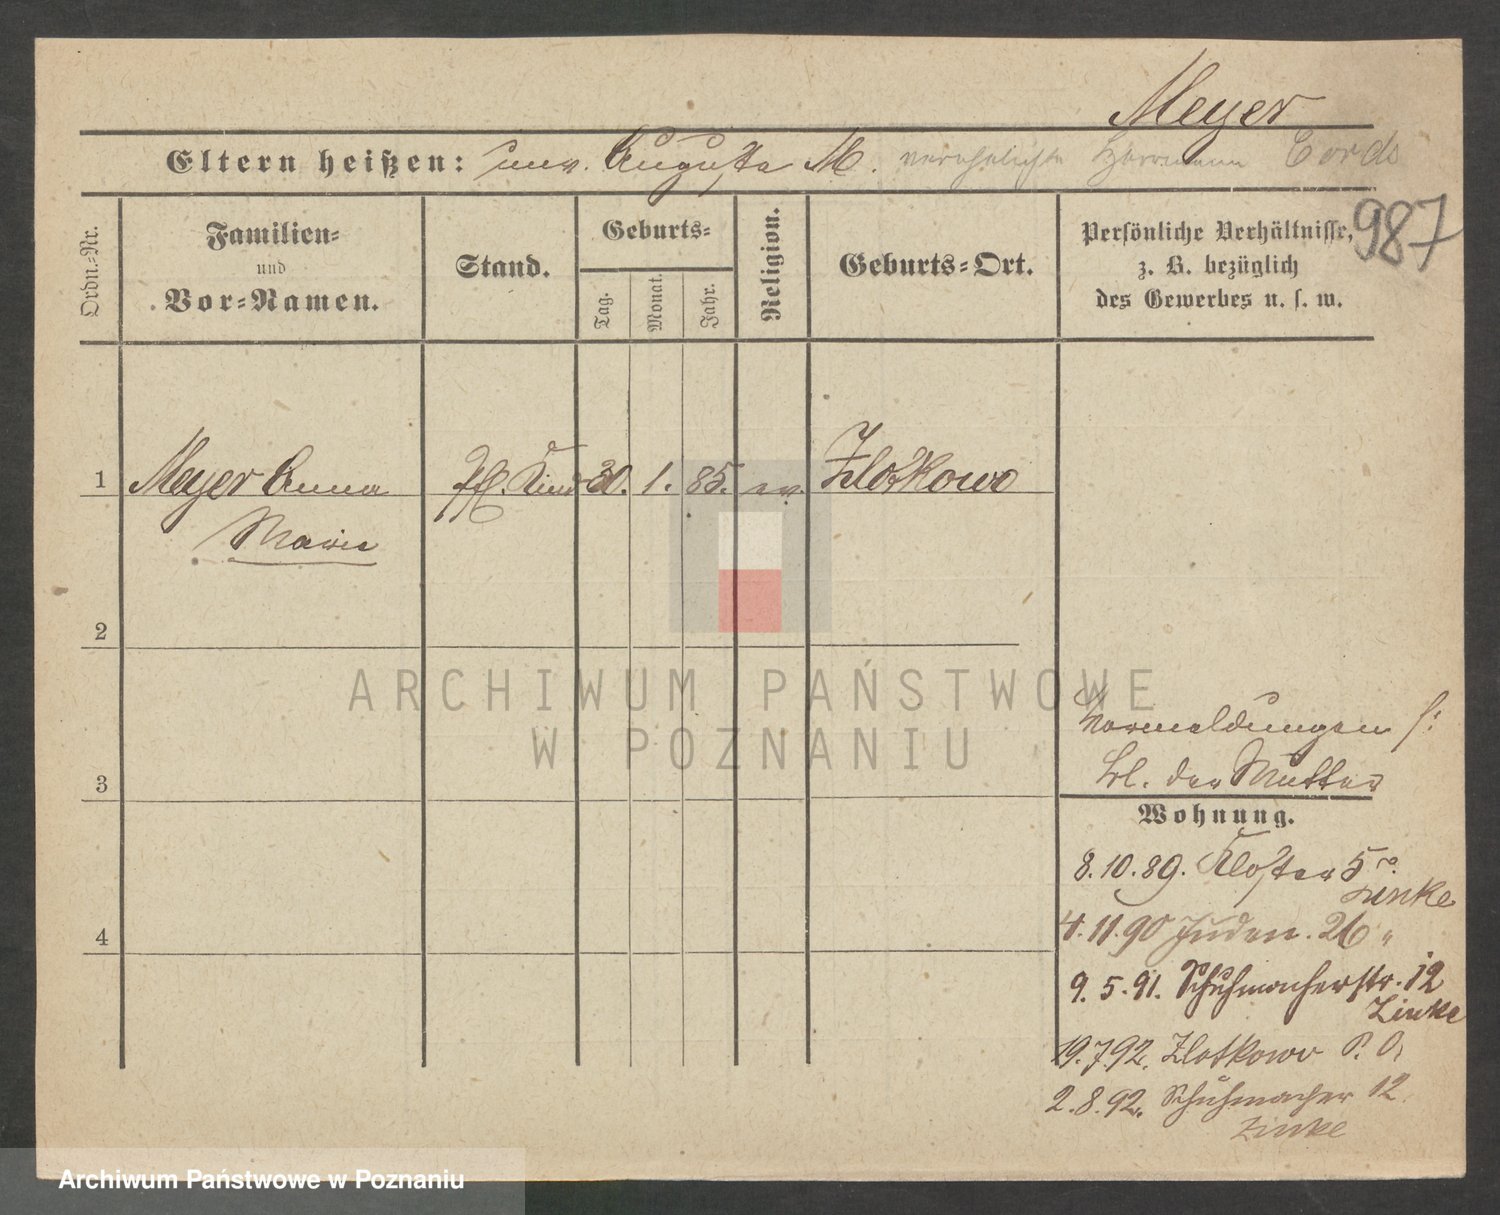 Meyer
Eltern heißen: unv. Augusta M. verehelichte Herrmann Cords
987
Ordn.-Nr.
Familien-
und
Vor-Namen.
Stand.
Geburts-
Tag.
Monat.
Jahr.
Religion.
Geburts-Ort.
Persönliche Verhältnisse,
z. B. bezüglich
des Gewerbes u. s. w.
1 Meyer Anna Pfl. Kind 30. 1. 85. ev. Zlotkowo
Marie
2
ARCHIWUM PAŃSTWOWE
W POZNANIU
3
Vormeldungen s:
bl. der Mutter
Wohnung.
8. 10. 89. Kloster 5
Zinke
4
4. 11. 90 Juden. 26 "
9. 5. 91. Schuhmacherstr. 12
Zinke
19. 7. 92. Zlotkowo P. O.
2. 8. 92. Schuhmacher 12.
Zinke
Archiwum Państwowe w Poznaniu